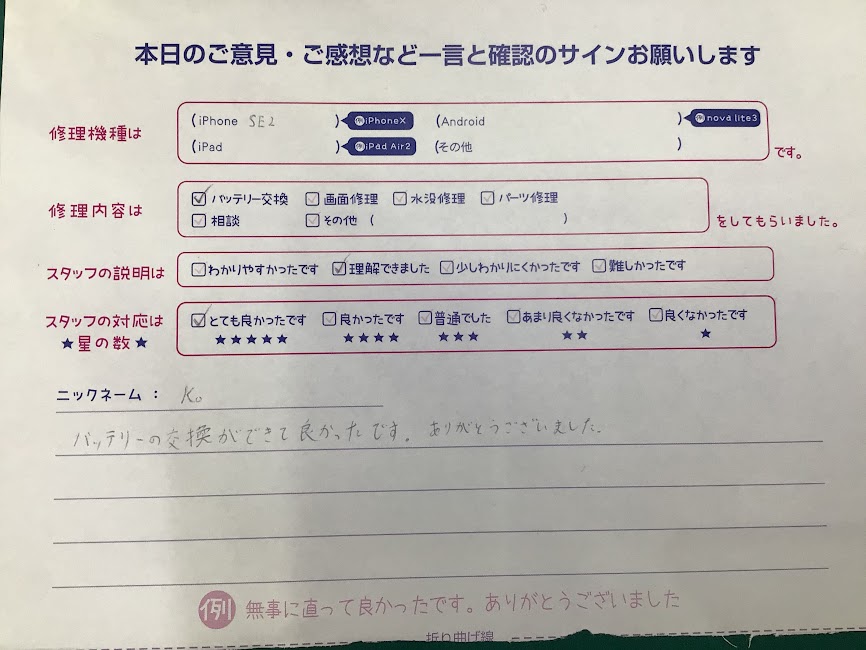 本日のご意見・ご感想など一言と確認のサインお願いします
修理機種は
(iPhone SE2 ) 例iPhoneX (Android ) 例nova lite3
(iPad ) 例iPad Air2 (その他 ) です。
修理内容は
バッテリー交換 画面修理 水没修理 パーツ修理
相談 その他 ( ) をしてもらいました。
スタッフの説明は わかりやすかったです 理解できました 少しわかりにくかったです 難しかったです
スタッフの対応は とても良かったです 良かったです 普通でした あまり良くなかったです 良くなかったです
★星の数★ ★★★★★ ★★★★ ★★★ ★★ ★
ニックネーム： K。
バッテリーの交換ができて良かったです。ありがとうございました。
例 無事に直って良かったです。ありがとうございました
折り曲げ線